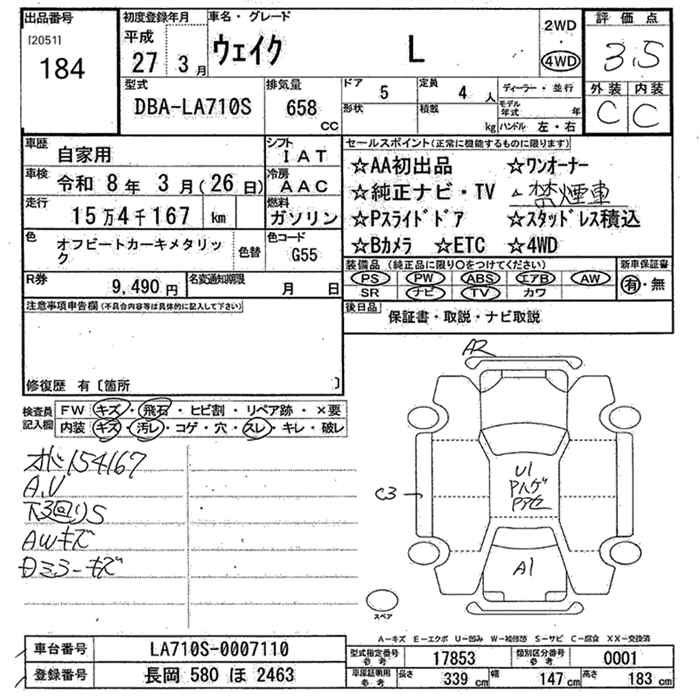 出品番号 初度登録年月 車名・グレード 2WD 評価点
[2051] 平成
184 27 3月 ウェイク L 4WD 3.5
外装 内装
型式 排気量 ドア 5 定員 4人 ディーラー・並行 C C
DBA-LA710S 658cc 形状 積載 kg モデル年式 年
ハンドル 左・右
車歴 自家用 シフト IAT セールスポイント(正常に機能するものに限ります)
☆AA初出品 ☆ワンオーナー
車検 令和 8年 3月(26日) 冷房 AAC
☆純正ナビ・TV 禁煙車
走行 15万4千167 km 燃料 ガソリン
☆Pスライドドア ☆スタッドレス積込
色 オフビートカーキメタリック 色替 色コード G55
☆Bカメラ ☆ETC ☆4WD
装備品(純正品に限り○をつけてください) 新車保証書
R券 9,490円 名変通知期限 月 日
PS PW ABS エアB AW 有・無
SR ナビ TV カワ
注意事項申告欄(不具合内容等は具体的に記入して下さい)
後日品 保証書・取説・ナビ取説
修復歴 有〔箇所 〕
A2
検査員記入欄 FW キズ・飛石・ヒビ割・リペア跡・×要
内装 キズ・汚レ・コゲ・穴・スレ・キレ・破レ
オド154167
A.V
下回りS
AWキズ
Dミラーキズ
C3
U1
Pハゲ
A1
スペア
A-キズ E-エクボ U-凹み W-補修跡 S-サビ C-腐食 XX-交換済
車台番号 LA710S-0007110 型式指定番号参考 17853 類別区分番号参考 0001
登録番号 長岡 580 ほ 2463 車庫証明用参考 長さ 339cm 幅 147cm 高さ 183cm